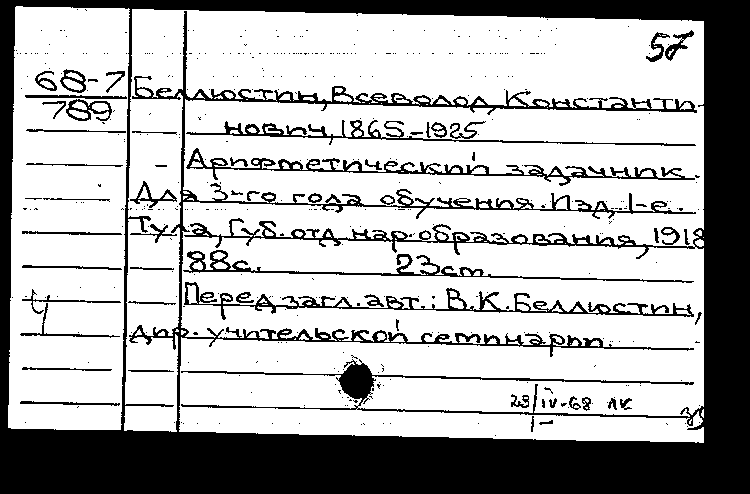 57
68-7 Беллюстин, Всеволод Константи-
789
нович, 1865.-1925
- Арифметический задачник.
Для 3-го года обучения. Изд. 1-е.
Тула, Губ. отд нар. образования, 1918
88с. 23см.
Перед загл. авт.: В.К. Беллюстин,
дир. учительской семинарии.
23/IV-68 ЛК